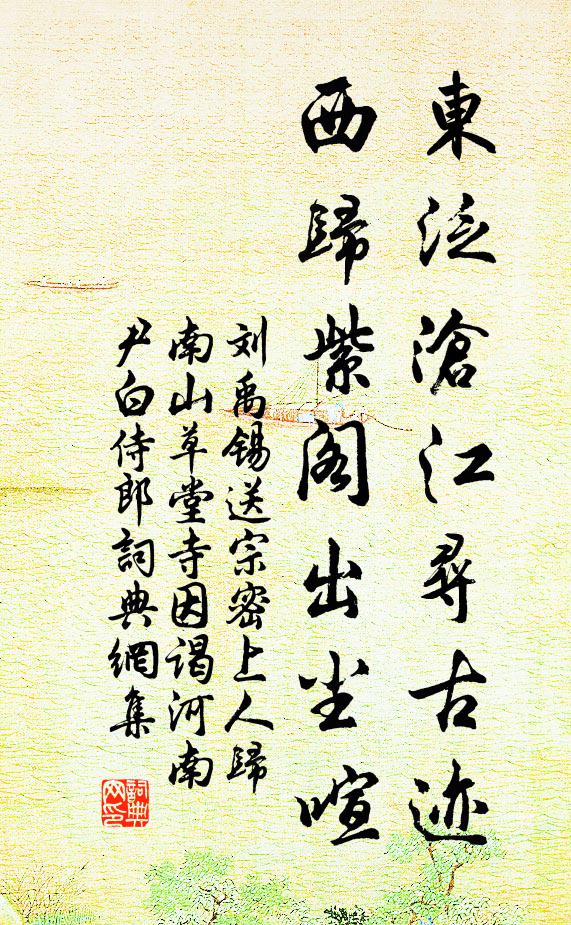 東泛滄江尋古迹
西歸紫閣出尘喧
刘禹锡送宗密上人歸
南山草堂寺因谒河南
尹白侍郎詞典網集
詞典
网印